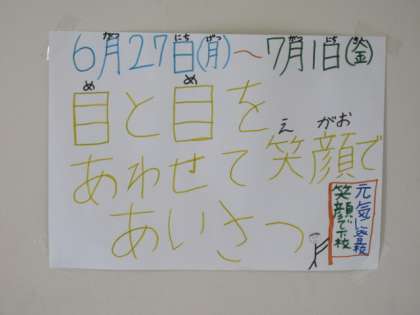 6月27日(月)～7月1日(金)
目と目を
あわせて笑顔で
あいさつ
元気に登校
笑顔で下校